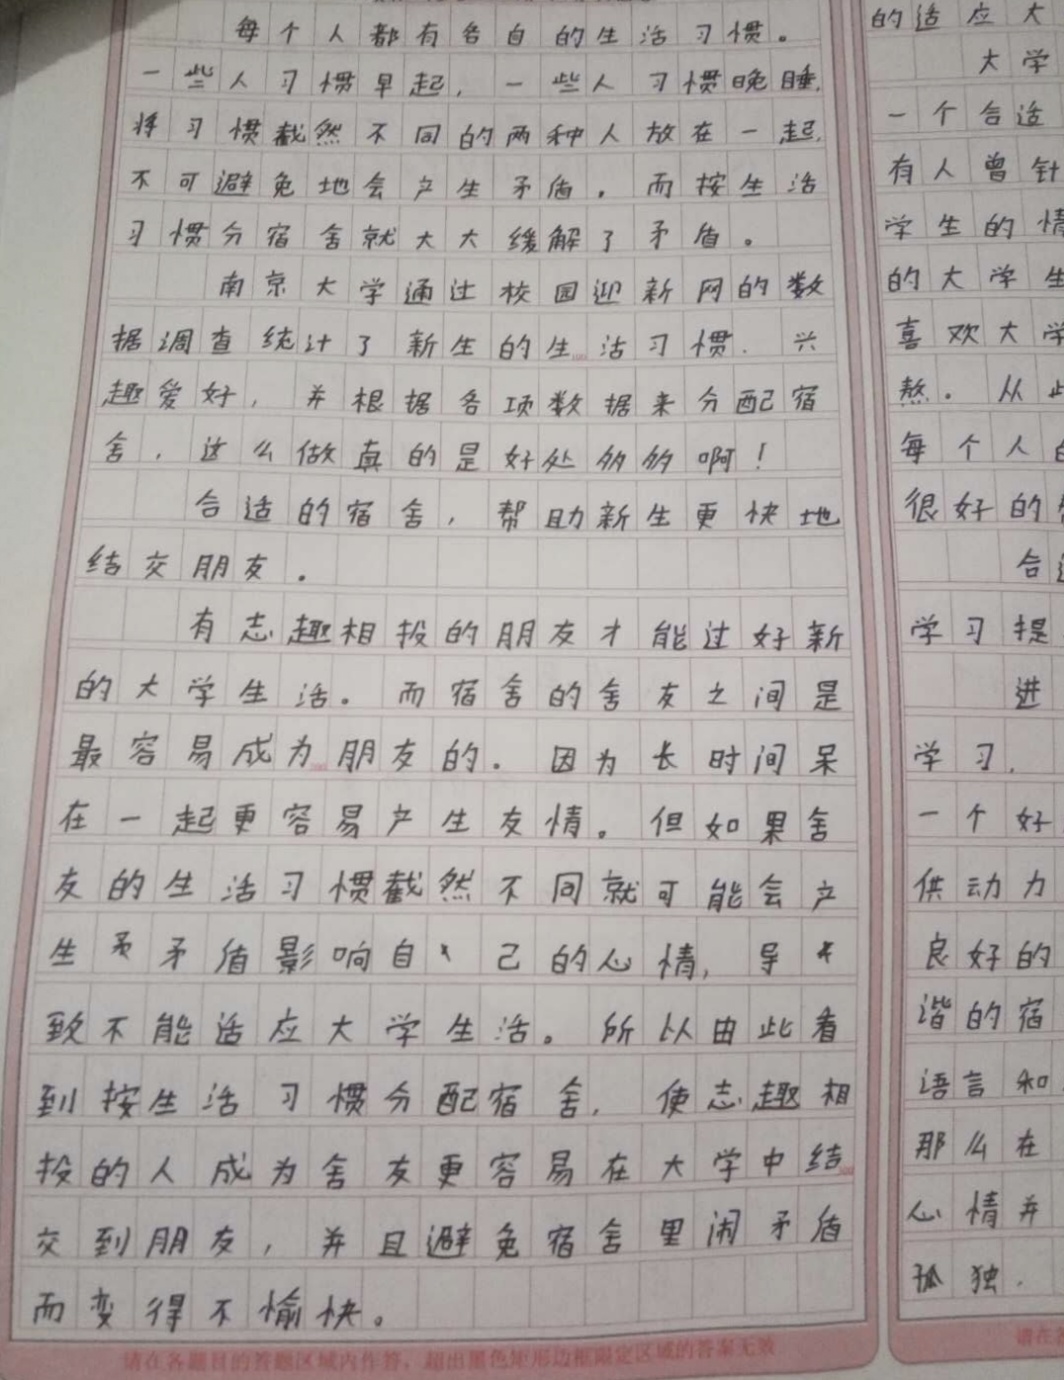 每个人都有各自的生活习惯。
一些人习惯早起，一些人习惯晚睡，
将习惯截然不同的两种人放在一起，
不可避免地会产生矛盾。而按生活
习惯分宿舍就大大缓解了矛盾。
南京大学通过校园迎新网的数
据调查统计了新生的生活习惯、兴
趣爱好，并根据各项数据来分配宿
舍，这么做真的是好处多多啊！
合适的宿舍，帮助新生更快地
结交朋友。
有志趣相投的朋友才能过好新
的大学生活。而宿舍的舍友之间是
最容易成为朋友的。因为长时间呆
在一起更容易产生友情。但如果舍
友的生活习惯截然不同就可能会产
生矛盾影响自己的心情，导
致不能适应大学生活。所以由此看
到按生活习惯分配宿舍，使志趣相
投的人成为舍友更容易在大学中结
交到朋友，并且避免宿舍里闹矛盾
而变得不愉快。
请在各题目的答题区域内作答，超出黑色矩形边框限定区域的答案无效
的适应大
大学
一个合适
有人曾针
学生的情
的大学生
喜欢大学
熬。从此
每个人的
很好的
合适
学习提
进
学习.
一个好
供动力
良好的
谐的宿
语言和
那么在
心情并
孤独.
请在各